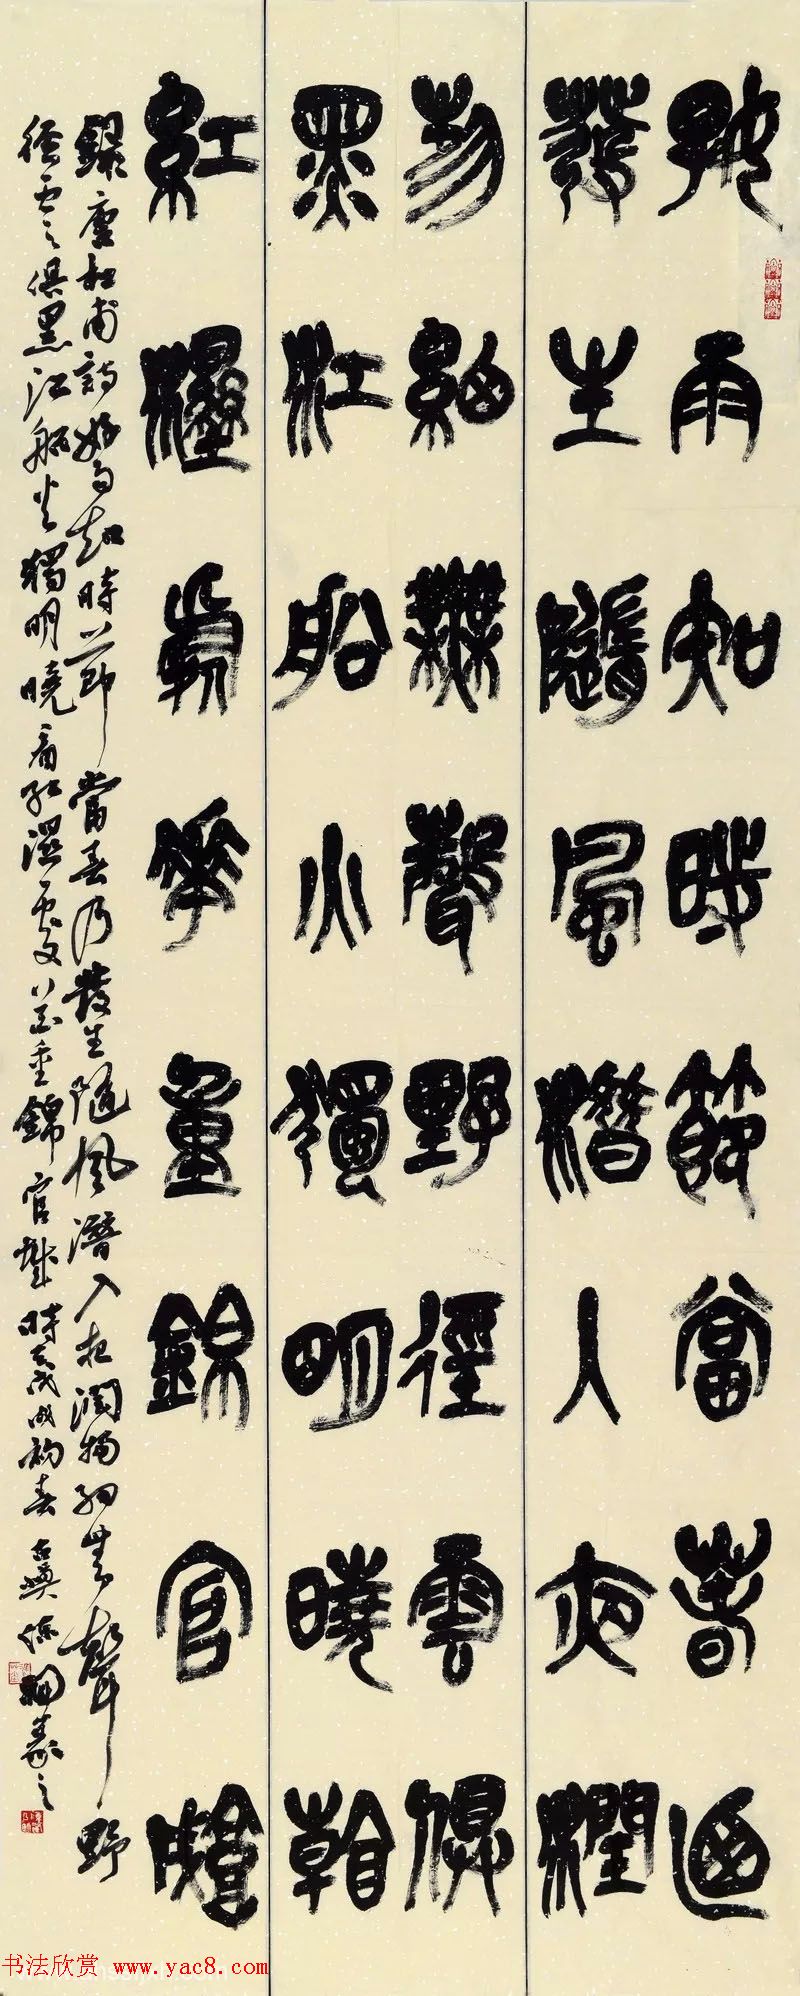 好雨知時節當春迺
發生隨風潛入夜潤
物細無聲野徑雲俱
黑江船火獨明曉看
紅濕處花重錦官城
錄唐杜甫詩好雨知時節當春乃發生隨風潛入夜潤物細無聲野
徑雲俱黑江船火獨明曉看紅濕處花重錦官城時戊戌初春篆之
书法欣赏 www.yac8.com